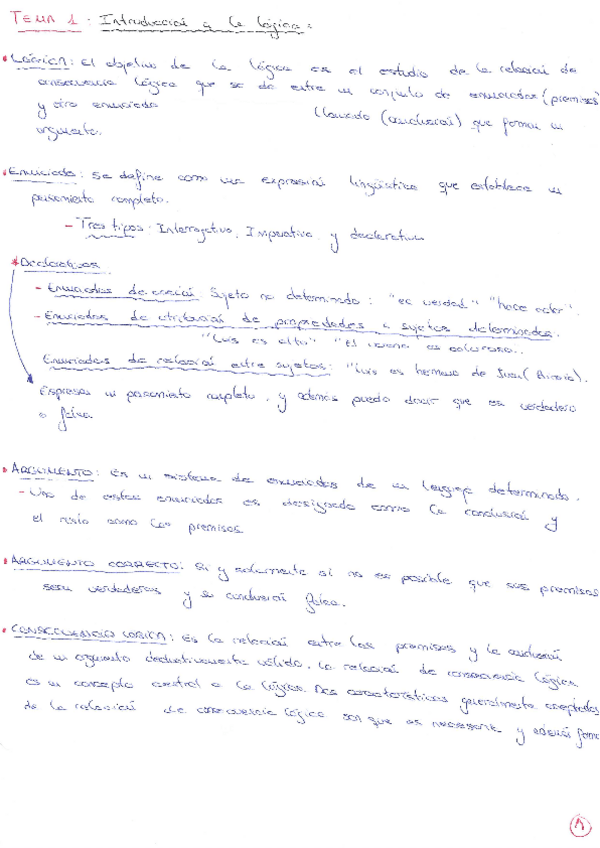 TEMA 1: Introducción a la lógica:
• LÓGICA: El objetivo de la lógica es el estudio de la relación de
consecuencia lógica que se da entre un conjunto de enunciados (premisas)
y otro enunciado llamado (conclusión) que forman un
argumento.
• Enunciado: Se define como una expresión lingüística que establece un
pensamiento completo.
- Tres tipos: Interrogativo, Imperativo y declarativo
* Declarativos
- Enunciados de acción: Sujeto no determinado: "es verdad" "hace calor".
- Enunciados de atribución de propiedades a sujetos determinados.
"Luis es alto" "El verano es caluroso..
Enunciados de relación entre sujetos: "Luis es hermano de Juan
Expresa un pensamiento completo, y además puedo decir que es verdadero
o falso
• ARGUMENTO: Es un sistema de enunciados de un lenguaje determinado.
- Uno de estos enunciados es designado como la conclusión y
el resto como las premisas.
• ARGUMENTO CORRECTO: Si y solamente si no es posible que sus premisas
sean verdaderas y su conclusión falsa.
• CONSECUENCIA LOGICA: Es la relación entre las premisas y la conclusión
de un argumento deductivamente válido. La relación de consecuencia lógica
es un concepto central a la lógica. Dos características generalmente aceptadas
de la relación de consecuencia lógica son que es necesaria y
1